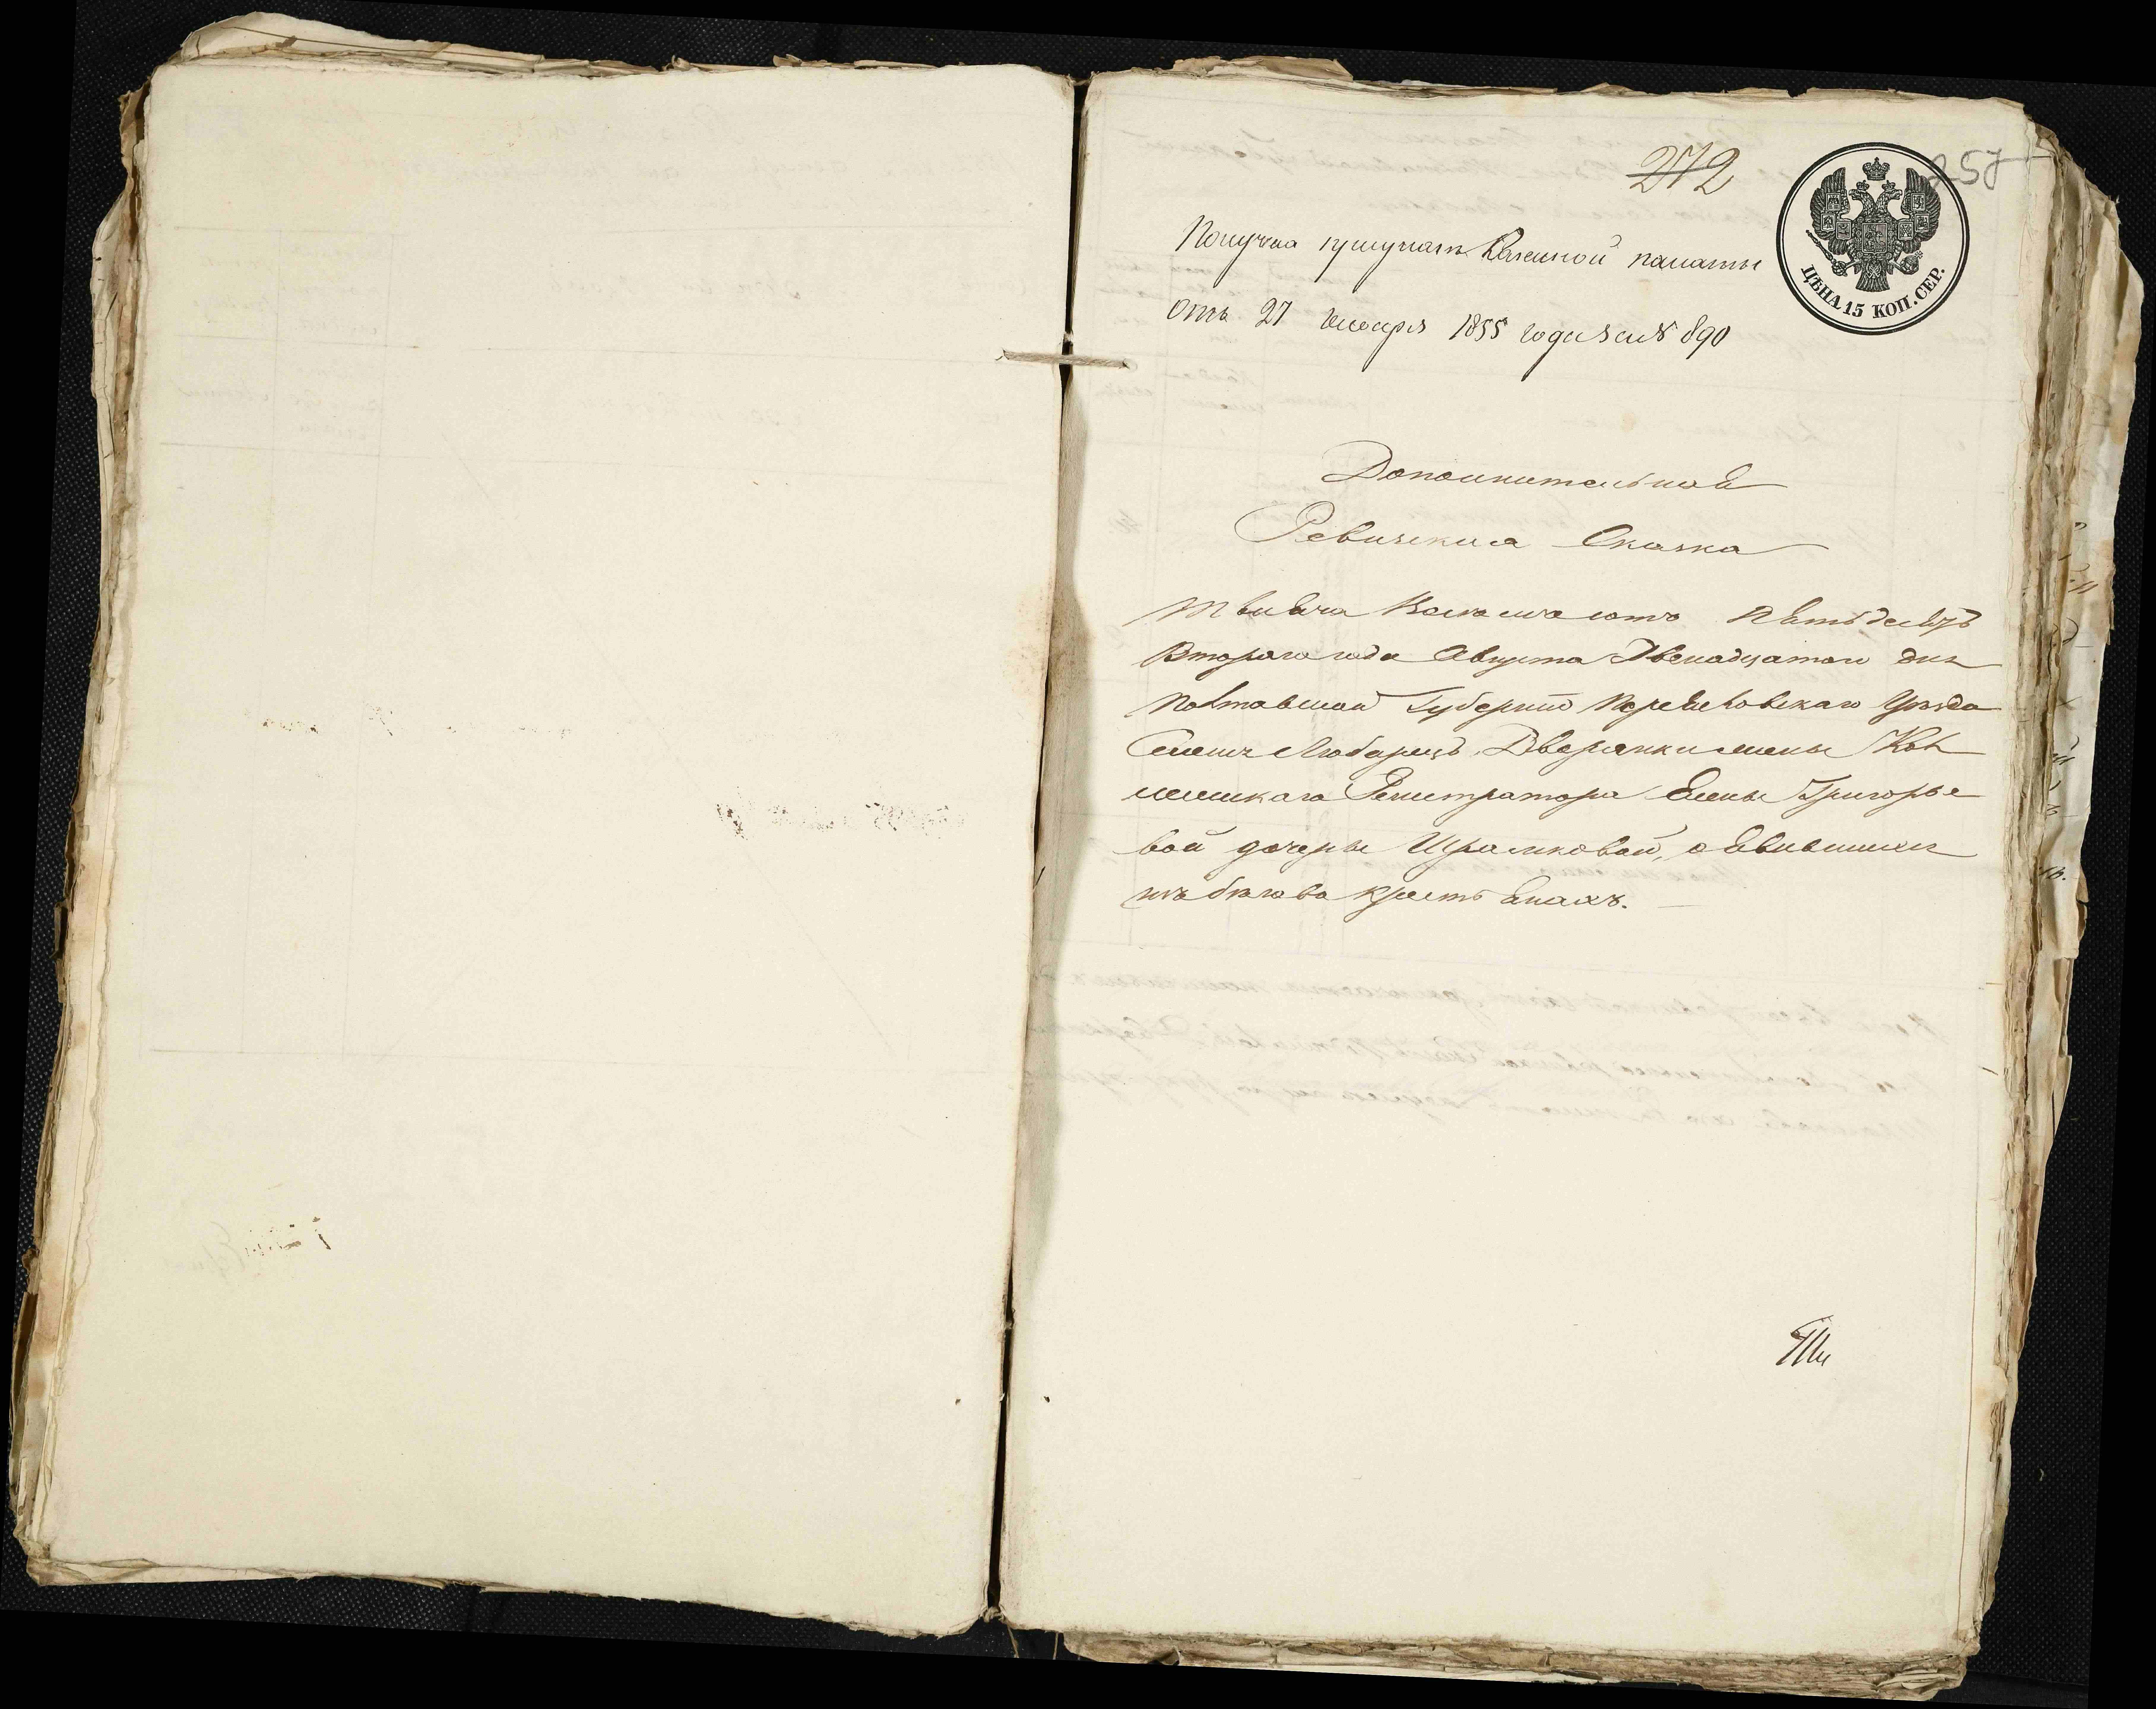 272
257
ЦѢНА 15 КОП. СЕР.
Получена при указѣ Казенной палаты
отъ 27 Генваря 1855 года за № 890
Дополнительная
Ревизская Сказка
Тысяча Восемьсотъ Пятьдесятъ
Втораго года Августа Двенадцатаго дня
Полтавской Губерніи Переяславскаго Уѣзда
Любарецъ Дворянки жены Кол
лежскаго Регистратора Елены Григорье
вой дочери Израилковой, о явившихся
изъ бѣгова крестьянахъ.